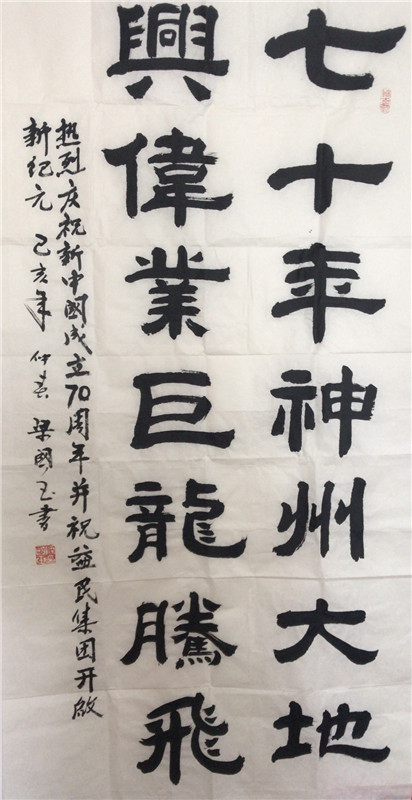 七十年神州大地
興偉業巨龍騰飛
热烈庆祝新中國成立70周年并祝益民集团开啟
新纪元 己亥年仲春 梁國玉書